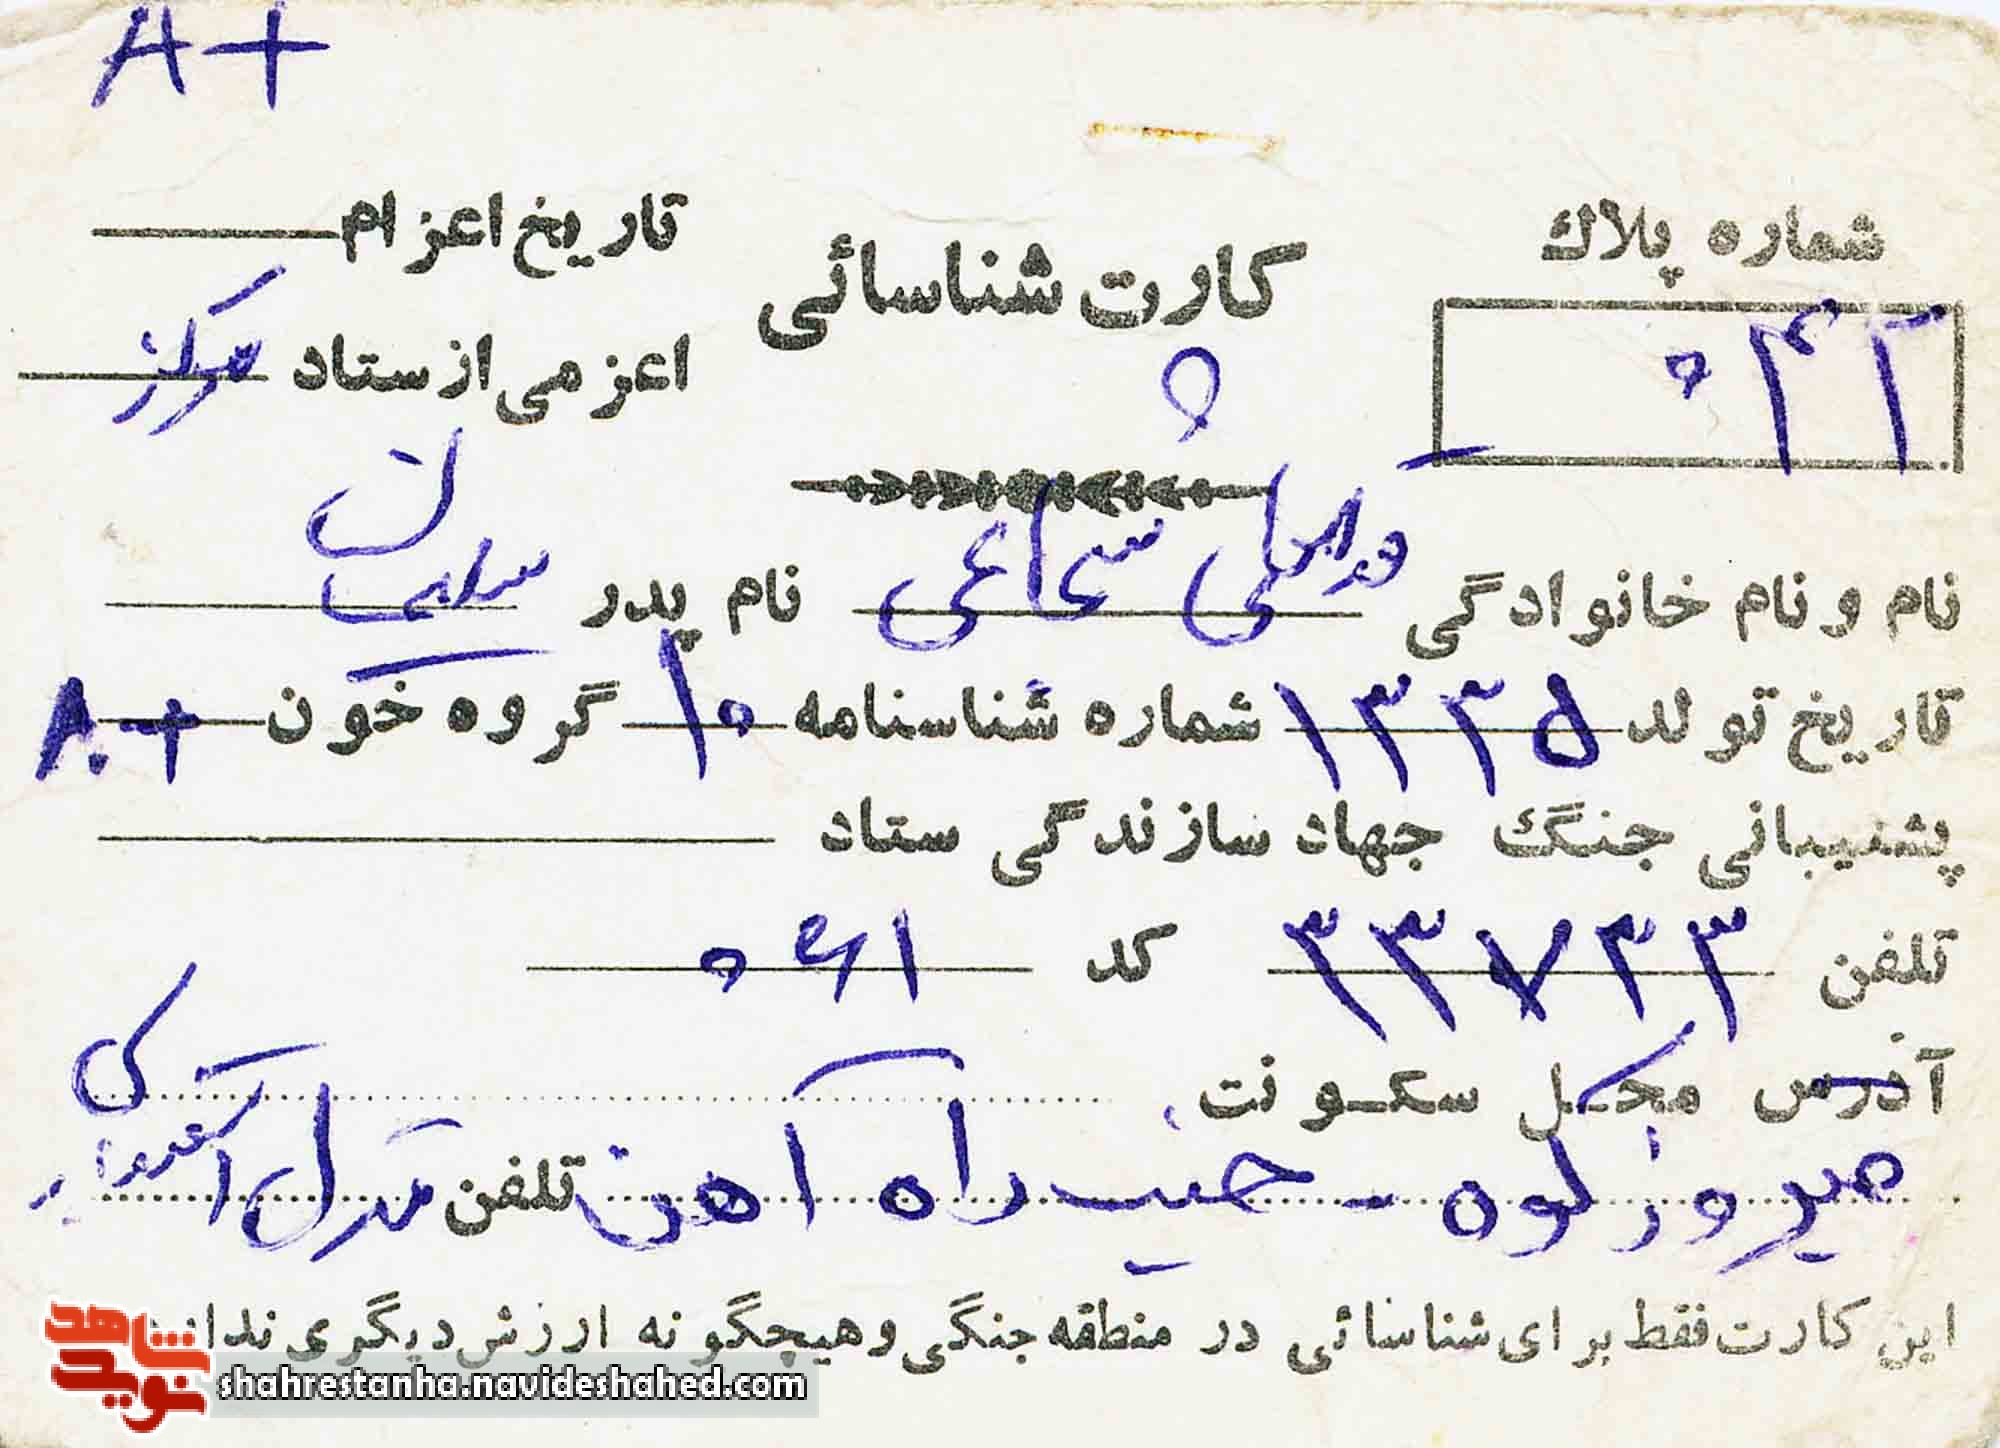 A+
شماره پلاك
۲۴۰
کارت شناسائی
تاریخ اعزام
اعزامی از ستاد مرکز
نام و نام خانوادگی شجاعی نام پدر سلیمان
تاریخ تولد ۱۳۳۵ شماره شناسنامه ۱۰ گروه خون A+
پشتیبانی جنگ جهاد سازندگی ستاد
تلفن ۳۳۷۴۳ کد ۰۶۱
آدرس محل سکونت
فیروزکوه - جنب راه آهن تلفن منزل
این کارت فقط برای شناسائی در منطقه جنگی و هیچگونه ارزش دیگری ندارد
نوید شاهد
shahrestanha.navideshahed.com